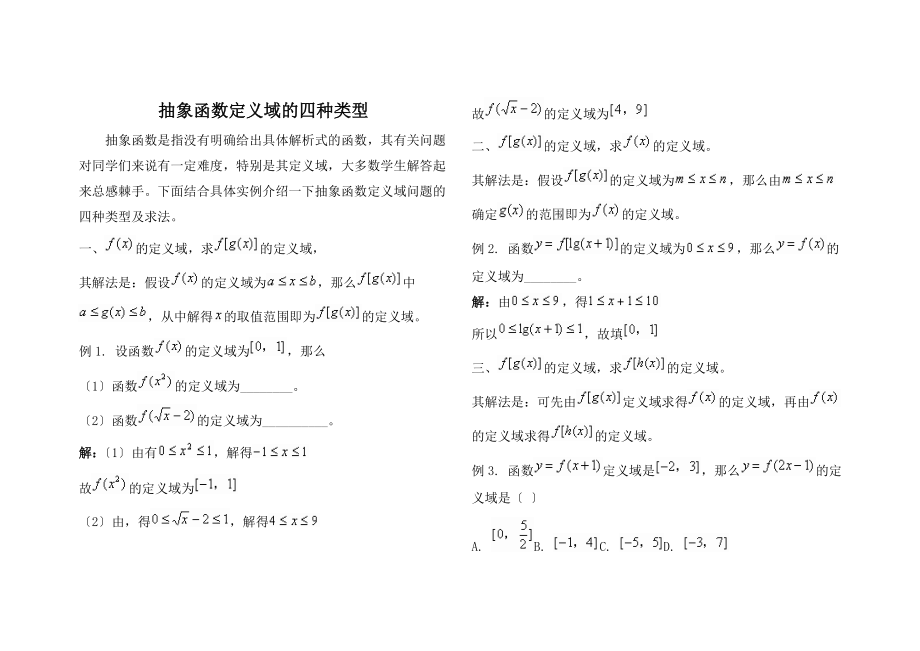 抽象函数定义域的四种类型
抽象函数是指没有明确给出具体解析式的函数，其有关问题
对同学们来说有一定难度，特别是其定义域，大多数学生解答起
来总感棘手。下面结合具体实例介绍一下抽象函数定义域问题的
四种类型及求法。
一、f(x)的定义域，求f[g(x)]的定义域，
其解法是：假设f(x)的定义域为a≤x≤b，那么f[g(x)]中
a≤g(x)≤b，从中解得x的取值范围即为f[g(x)]的定义域。
例1. 设函数f(x)的定义域为[0，1]，那么
〔1〕函数f(x²)的定义域为________。
〔2〕函数f(√x−2)的定义域为__________。
解:〔1〕由有0≤x²≤1，解得−1≤x≤1
故f(x²)的定义域为[−1，1]
〔2〕由，得0≤√x−2≤1，解得4≤x≤9
故f(√x−2)的定义域为[4，9]
二、f[g(x)]的定义域，求f(x)的定义域。
其解法是：假设f[g(x)]的定义域为m≤x≤n，那么由m≤x≤n
确定g(x)的范围即为f(x)的定义域。
例2. 函数y=f[lg(x+1)]的定义域为0≤x≤9，那么y=f(x)的
定义域为________。
解:由0≤x≤9，得1≤x+1≤10
所以0≤lg(x+1)≤1，故填[0，1]
三、f[g(x)]的定义域，求f[h(x)]的定义域。
其解法是：可先由f[g(x)]定义域求得f(x)的定义域，再由f(x)
的定义域求得f[h(x)]的定义域。
例3. 函数y=f(x+1)定义域是[−2，3]，那么y=f(2x−1)的定
义域是〔 〕
A. [0，5/2]B. [−1，4]C. [−5，5]D. [−3，7]